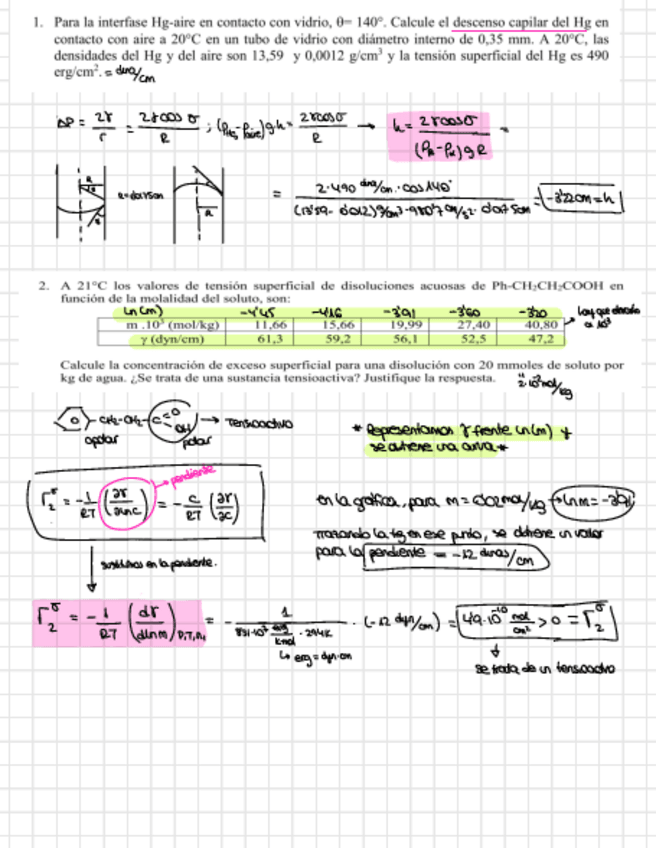 1. Para la interfase Hg-aire en contacto con vidrio, θ= 140°. Calcule el descenso capilar del Hg en
contacto con aire a 20°C en un tubo de vidrio con diámetro interno de 0,35 mm. A 20°C, las
densidades del Hg y del aire son 13,59 y 0,0012 g/cm³ y la tensión superficial del Hg es 490
erg/cm². = dina/cm
ΔP = 2γ/r = 2γcosσ/R ; (ρHg-ρaire)gh = 2γcosσ/R → h = 2γcosσ/((ρ-ρ)gR) =
R=0'0175cm
= 2·490 dina/cm · cos140°/((13'59-0'0012)g/cm³·980'7 cm/s²·0'0175cm) = -3'22cm = h
2. A 21°C los valores de tensión superficial de disoluciones acuosas de Ph-CH₂CH₂COOH en
función de la molalidad del soluto, son:
Ln(m) -4'45 -4'16 -3'91 -3'60 -3'20 hay que
m .10³ (mol/kg) 11,66 15,66 19,99 27,40 40,80 a 10³
γ (dyn/cm) 61,3 59,2 56,1 52,5 47,2
Calcule la concentración de exceso superficial para una disolución con 20 mmoles de soluto por
kg de agua. ¿Se trata de una sustancia tensioactiva? Justifique la respuesta. 2·10⁻² mol/kg
CH₂-CH₂-C=O OH → Tensoactivo
apolar polar
* Representamos γ frente Ln(m) y
se obtiene una curva *
pendiente
Γ₂^σ = -1/RT (∂γ/∂lnc) = -c/RT (∂γ/∂c)
en la gráfica, para m = 0'02mol/kg → Lnm = -3'91
trazando la tg en ese punto, se obtiene un valor
para la pendiente = -12 dinas/cm
sustituimos en la pendiente.
Γ₂^σ = -1/RT (dγ/dlnm)P,T,n₁ = - 1/(8'31·10⁷ erg/Kmol · 294K) · (-12 dyn/cm) = 4'9·10⁻¹⁰ mol/cm² > 0 = Γ₂^σ
↳ erg = dyn·cm
se trata de un tensoactivo